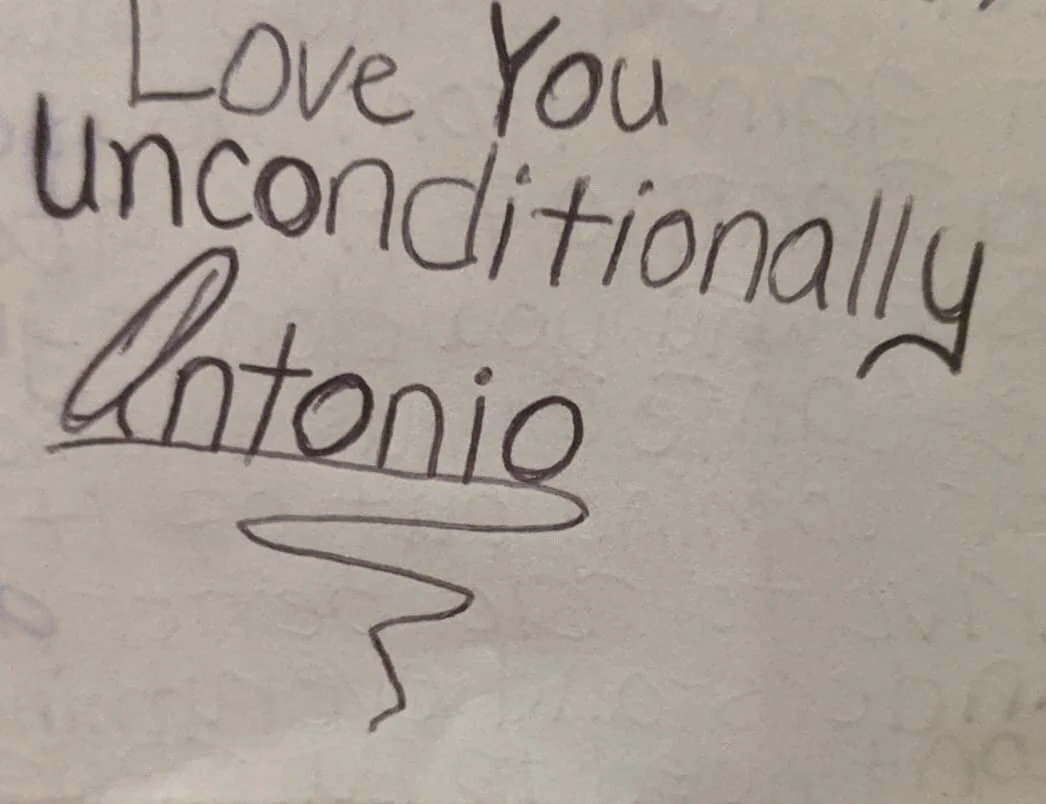 Love You
unconditionally
Antonio